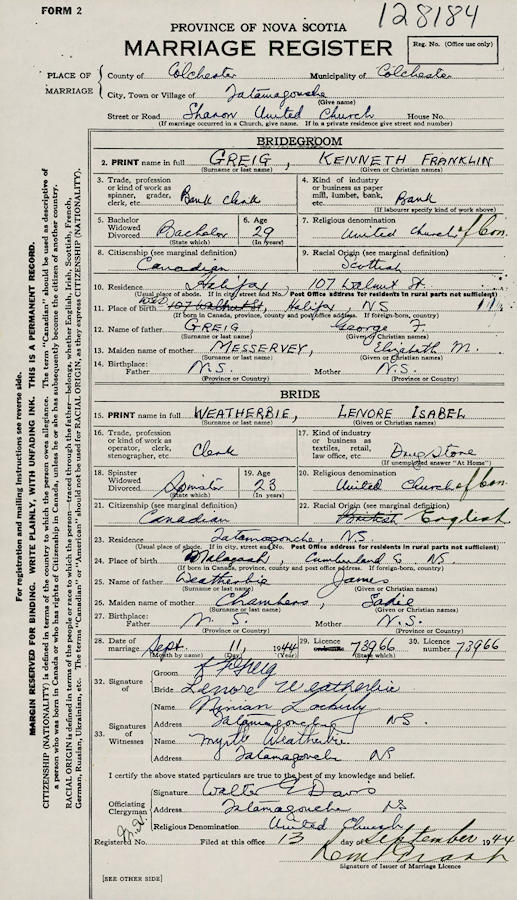 FORM 2
128184
PROVINCE OF NOVA SCOTIA
MARRIAGE REGISTER
Reg. No. (Office use only)
PLACE OF MARRIAGE
County of Colchester Municipality of Colchester
City, Town or Village of Tatamagouche
(Give name)
Street or Road Sharon United Church House No.
(If marriage occurred in a Church, give name. If in a private residence give street and number)
BRIDEGROOM
2. PRINT name in full GREIG, KENNETH FRANKLIN
(Surname or last name) (Given or Christian names)
3. Trade, profession or kind of work as spinner, grader, clerk, etc. Bank Clerk
4. Kind of industry or business as paper mill, lumber, bank, etc. Bank
(If labourer specify kind of work above)
5. Bachelor Widowed Divorced Bachelor
(State which)
6. Age 29
(In years)
7. Religious denomination United Church of Can.
8. Citizenship (see marginal definition) Canadian
9. Racial Origin (see marginal definition) Scottish
10. Residence Halifax, 107 Walnut St.
(Usual place of abode. If in city, street and No. Post Office address for residents in rural parts not sufficient)
11. Place of birth 107 Walnut St, Halifax NS
(If born in Canada, province, county and post office address. If foreign-born, country)
12. Name of father GREIG George F.
(Surname or last name) (Given or Christian names)
13. Maiden name of mother MESSERVEY, Elizabeth M.
(Surname or last name) (Given or Christian names)
14. Birthplace: Father N.S. Mother N.S.
(Province or Country) (Province or Country)
BRIDE
15. PRINT name in full WEATHERBIE, LENORE ISABEL
(Surname or last name) (Given or Christian names)
16. Trade, profession or kind of work as operator, clerk, stenographer, etc. Clerk
17. Kind of industry or business as textiles, retail, law office, etc. Drug Store
(If unemployed answer "At Home")
18. Spinster Widowed Divorced Spinster
(State which)
19. Age 23
(In years)
20. Religious denomination United Church of Can.
21. Citizenship (see marginal definition) Canadian
22. Racial Origin (see marginal definition) British English
23. Residence Tatamagouche, N.S.
(Usual place of abode. If in city, street and No. Post Office address for residents in rural parts not sufficient)
24. Place of birth Malagash, Cumberland Co. NS
(If born in Canada, province, county and post office address. If foreign-born, country)
25. Name of father Weatherbie James
(Surname or last name) (Given or Christian names)
26. Maiden name of mother Chambers, Sadie
(Surname or last name) (Given or Christian names)
27. Birthplace: Father N.S. Mother N.S.
(Province or Country) (Province or Country)
28. Date of marriage Sept. 11 1944
(Month by name) (Day) (Year)
29. Licence 73966
(State which)
30. Licence number 73966
32. Signature of
Groom K F Greig
Bride Lenore Weatherbie
33. Signatures of Witnesses
Name Ninian
Address Tatamagouche NS.
Name Myrtle Weatherbie
Address Tatamagouche NS
I certify the above stated particulars are true to the best of my knowledge and belief.
Officiating Clergyman
Signature Walter E Davis
Address Tatamagouche NS
Religious Denomination United Church
Registered No. Filed at this office 13 day of September 1944
Signature of Issuer of Marriage Licence
[SEE OTHER SIDE]
For registration and mailing instructions see reverse side.
MARGIN RESERVED FOR BINDING. WRITE PLAINLY, WITH UNFADING INK. THIS IS A PERMANENT RECORD.
CITIZENSHIP (NATIONALITY) is defined in terms of the country to which the person owes allegiance. The term "Canadian" should be used as descriptive of
a person who was born in Canada or who has rights of Citizenship in Canada, unless he or she has subsequently become the citizen of another country.
RACIAL ORIGIN is defined in terms of the people or race to which the person—traced through the father—belongs, whether English, Irish, Scottish, French,
German, Russian, Ukrainian, etc. The terms "Canadian" or "American" should not be used for RACIAL ORIGIN, as they express CITIZENSHIP (NATIONALITY).